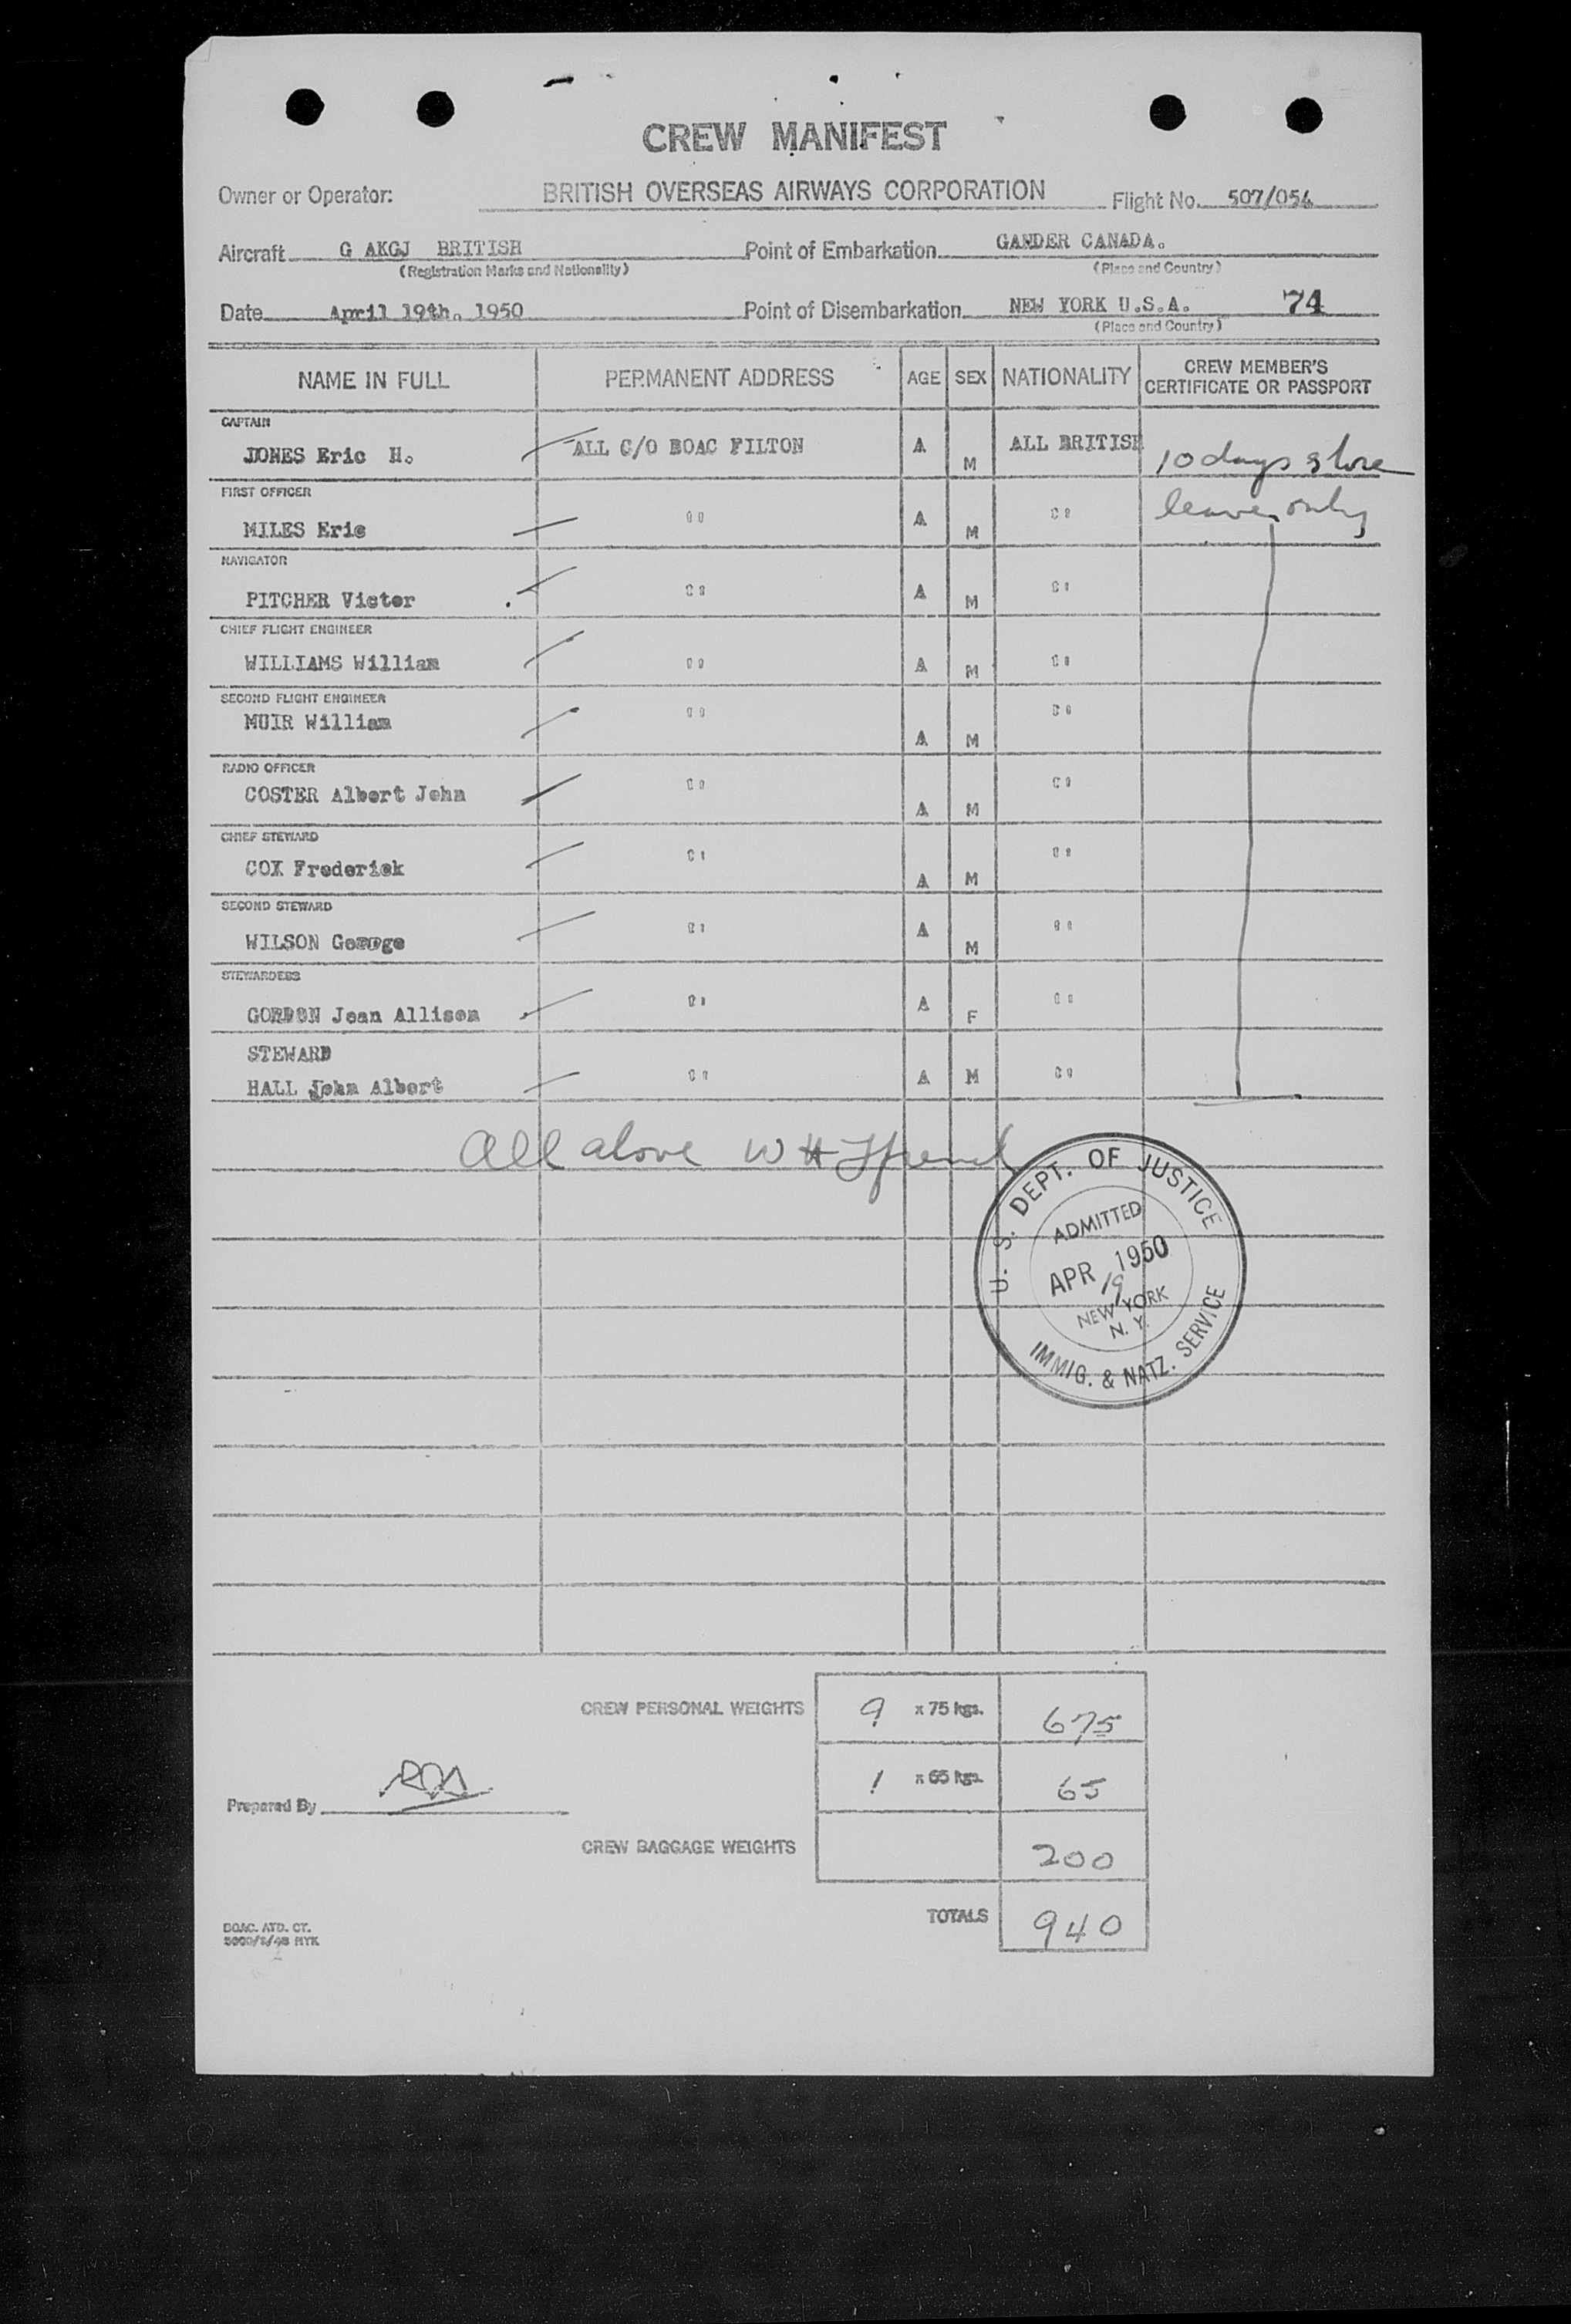 CREW MANIFEST
Owner or Operator: BRITISH OVERSEAS AIRWAYS CORPORATION Flight No. 507/054
Aircraft G AKGJ BRITISH Point of Embarkation GANDER CANADA.
(Registration Marks and Nationality) (Place and Country)
Date April 19th. 1950 Point of Disembarkation NEW YORK U.S.A. 74
(Place and Country)
NAME IN FULL PERMANENT ADDRESS AGE SEX NATIONALITY CREW MEMBER'S CERTIFICATE OR PASSPORT
CAPTAIN
JONES Eric H. ALL C/O BOAC FILTON A M ALL BRITISH 10 days shore
FIRST OFFICER
MILES Eric " A M " leave only
NAVIGATOR
PITCHER Victor " A M "
CHIEF FLIGHT ENGINEER
WILLIAMS William " A M "
SECOND FLIGHT ENGINEER
MUIR William " A M "
RADIO OFFICER
COSTER Albert John " A M "
CHIEF STEWARD
COX Frederick " A M "
SECOND STEWARD
WILSON George " A M "
STEWARDESS
GORDON Jean Allison " A F "
STEWARD
HALL John Albert " A M "
All above W H
U. S. DEPT. OF JUSTICE
ADMITTED
APR 19 1950
NEW YORK
N. Y.
IMMIG. & NATZ. SERVICE
CREW PERSONAL WEIGHTS 9 x 75 kgs. 675
1 x 65 kgs. 65
Prepared By
CREW BAGGAGE WEIGHTS 200
TOTALS 940
BOAC. ATD. CT.